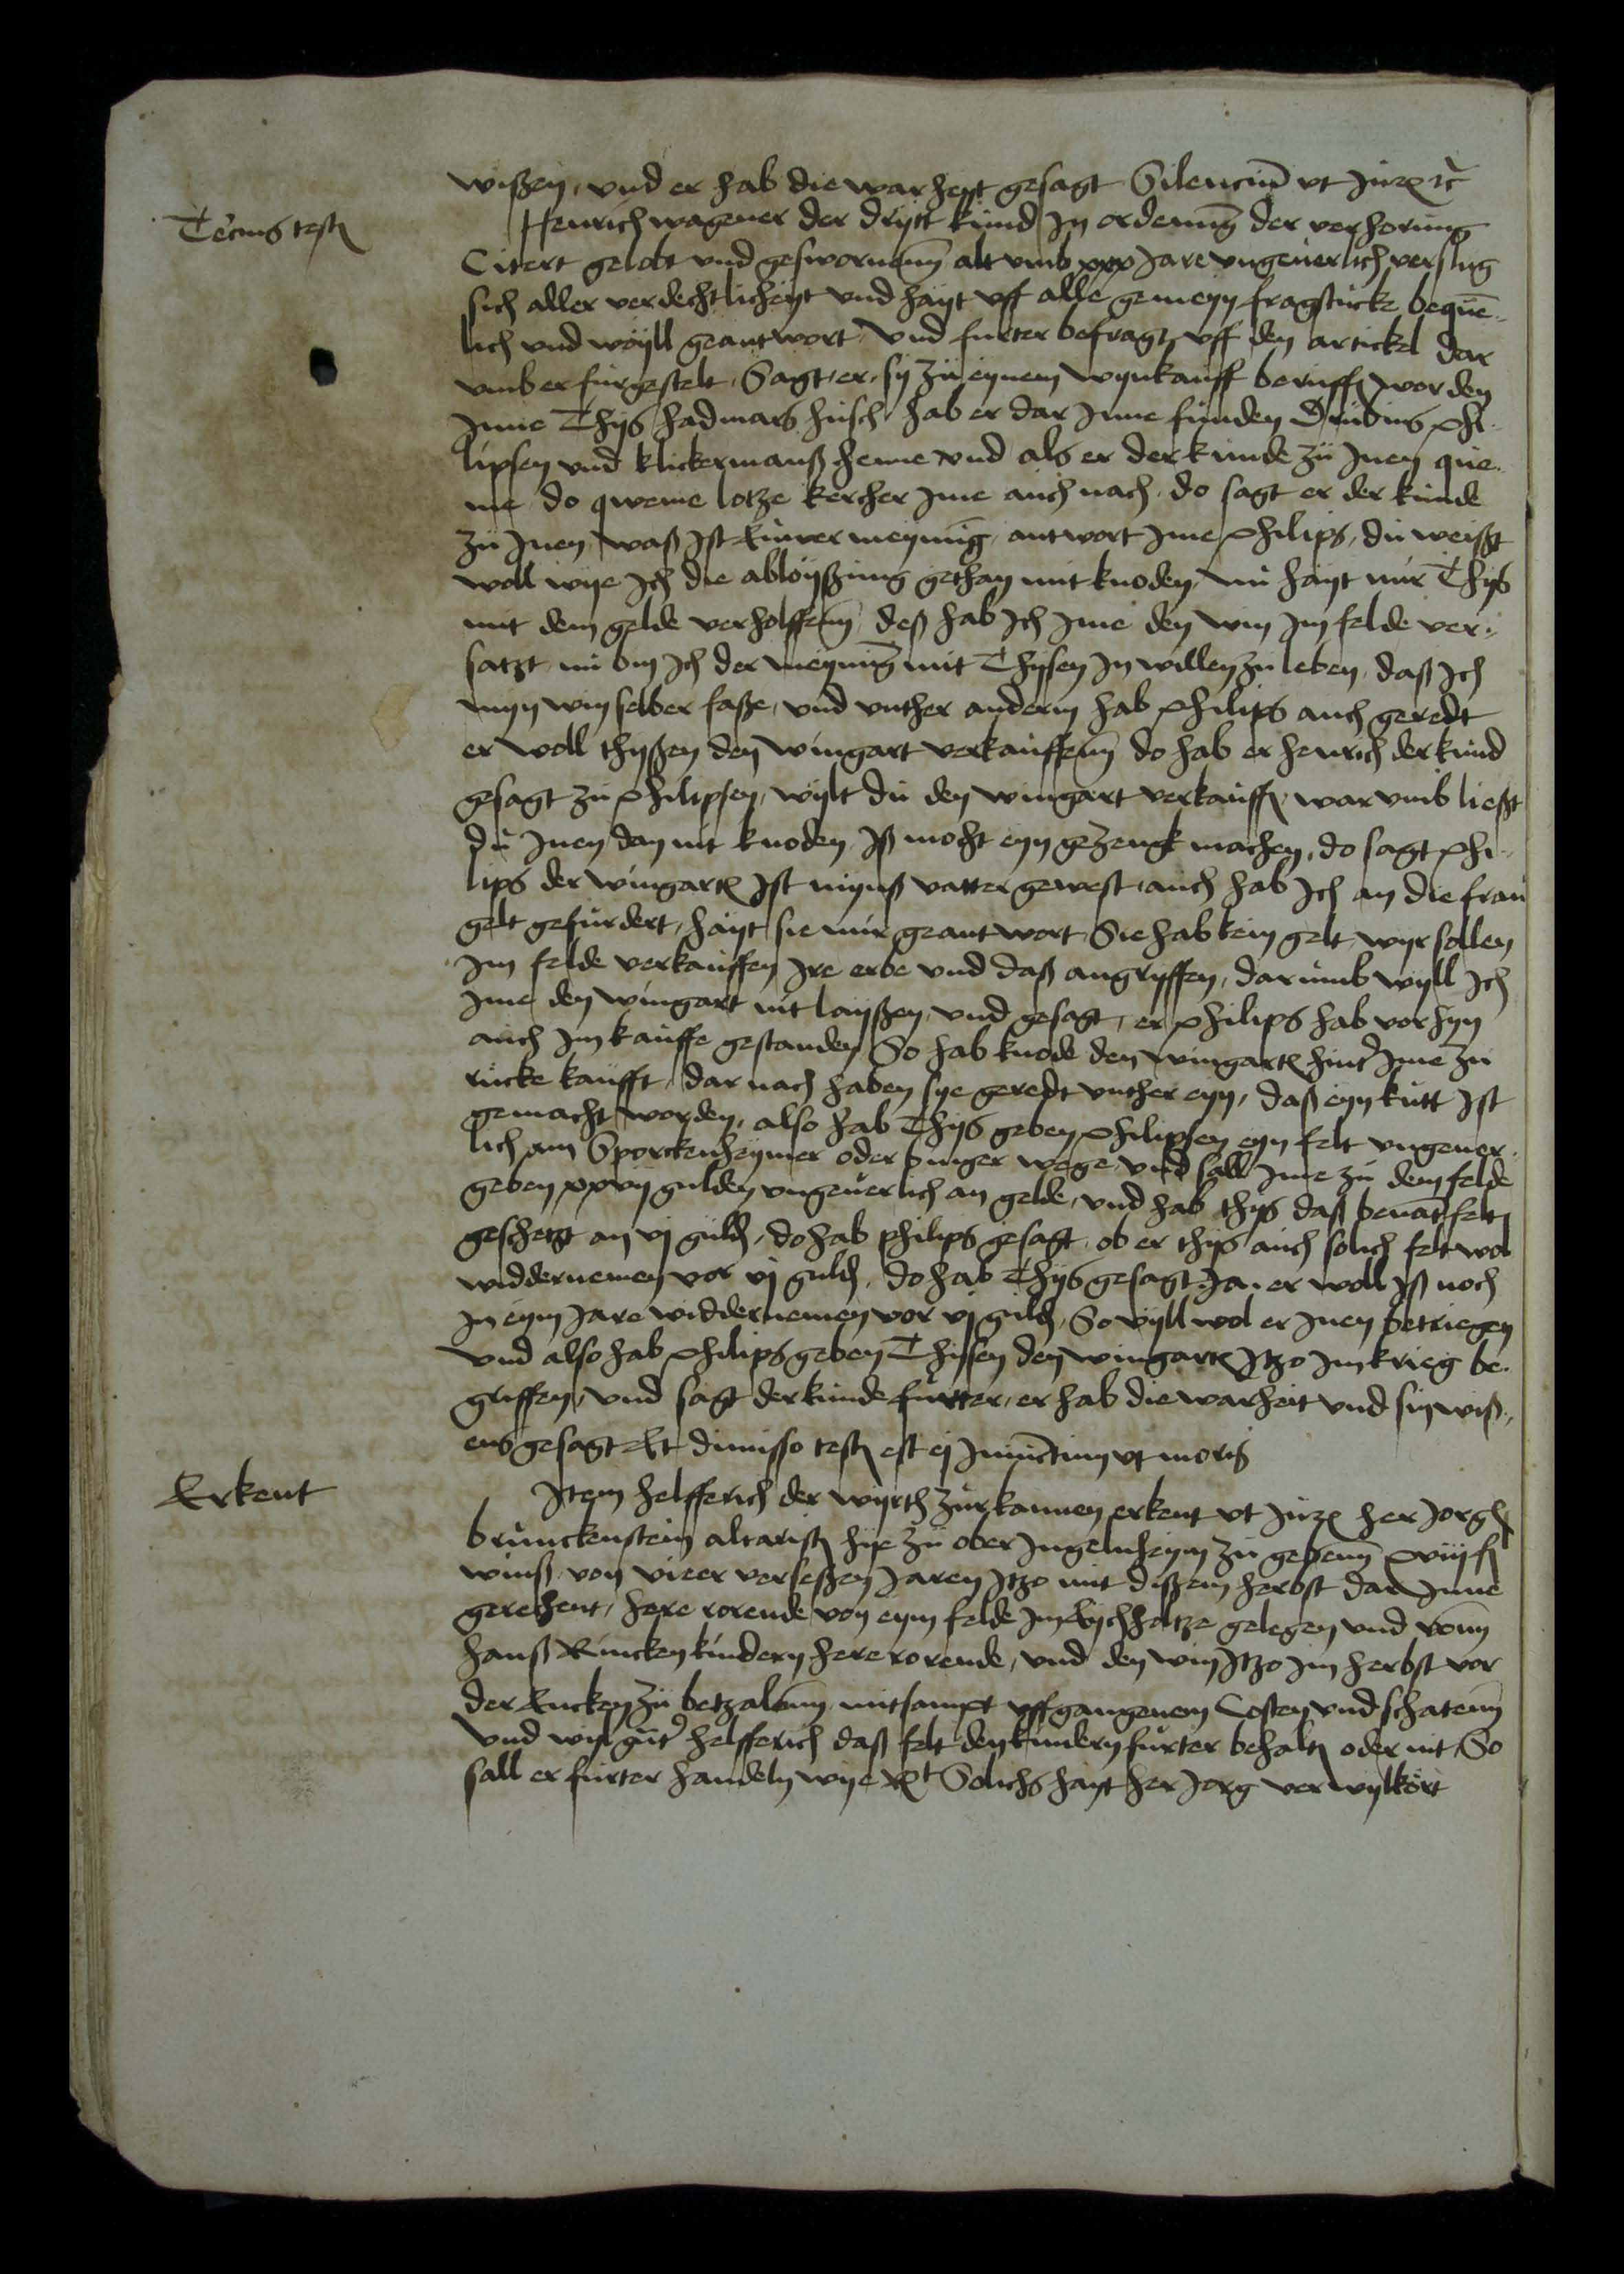 wißen, vnd er hab die warheyt gesagt Silenciu vt Jurꝭ ꝛc̃
Tercius testꝭ
Henrich wagener der drytt kund In ordenung der verhorung
Citert gelobt vnd geswornenn alt vmb xxx Jare vngeuerlich verslug
sich aller verdechtlicheyt vnd hayt vff alle gemeyn fragstucke beque-
lich vnd woyll geantwort, vnd furter befragt vff den artickel dar
vmb er furgestelt, Sagt, er sy zu eynem wynkauff beruffꝭ worden
Inne Thijs hadmars husch, hab er dar Inne funden Drubins phi-
lipsen vnd klickermanß henne vnd als er der kunde zu Inen que-
me, do qweme lotze kercher Ime auch nach, do sagt er der kunde
zu Inen, waß Ist Euwer meynung, antwort Ime philips, du weißt
woll wye Ich die abloyßung gethan mit knoden, nu hayt mir Thijs
mit dem gelde verholffenn, deß hab Ich Ime den win Im felde ver-
satzt, nu bin Ich der meynung mit Thysen In willen zu leben, daß Ich
myn win selber faße, vnd vnther anderm hab philips auch geredt
er woll thyßen den wingart verkauffenn, do hab er henrich der kund
gesagt zu philipsen, wylt du den wingart verkauffꝭ, war vmb ließt
du Inen dan nit knoden, Iß mocht eyn gezengk machen, do sagt phi-
lips der wingartꝭ Ist mynß vatter gewest, auch hab Ich an die frau
gelt gefurdert, hayt sie mir geantwort, Sie hab kein gelt, wyr sollen
Im felde verkauffen Ire erbe vnd daß angryffen, darumb wyll Ich
Ime den wingart nit layßen, vnd gesagt, er philips hab vorhyn
auch Im kauffe gestanden, So hab knode den wingartꝭ hinder Ime zu
rucke kaufft, dar nach haben sye geredt vnther eyn, daß eyn kutt Ist
gemacht worden, also hab Thijs geben philipsen eyn felt vngeuer-
lich am Sporckenheymer oder binger wege, vnd sall Ime zu dem felde
geben xxvij gulden vngeuerlich an gelde, vnd hab thijs daß benant felt
geschetzt an vj guldꝭ, do hab philips gesagt, ob er thijs auch solich felt wol
widdernemen vor vj guldꝭ, do hab Thijs gesagt, Ja, er woll Iß noch
In eym Jare widdernemen vor vj guldꝭ, So wyll wol er Inen betriegen
vnd also hab philips geben Thysen den wingartꝭ Itzo Im krieg be-
griffen, vnd sagt der kunde furter, er hab die warheit vnd sin wiß-
ens gesagt Et dimisso testꝭ est ei Iniunctum vt moris
Erkent
Item helfferich der wyrth zur kannen erkent vt Jurꝭ her Jorgꝭ
brunckenstein altaristꝭ hye zu ober Ingelnheym zu gebenn
winß, von vieer verseßen Jaren Itzo mit dißem herbst dar Inne
gerechent, here rorende von eym felde Im Eychholtze gelegen vnd vonn
hanß Rincken kindern here rorende, vnd den win Itzo Im herbst vor
der Eucken zu betzalenn mitsampt vffgangenem Costen vnd schatenn
vnd wyl gut helfferich daß felt den kindern furter behaltꝭ oder nit, So
sall er furter handeln wye Rꝭt Solichs hayt her Jorg verwylkort